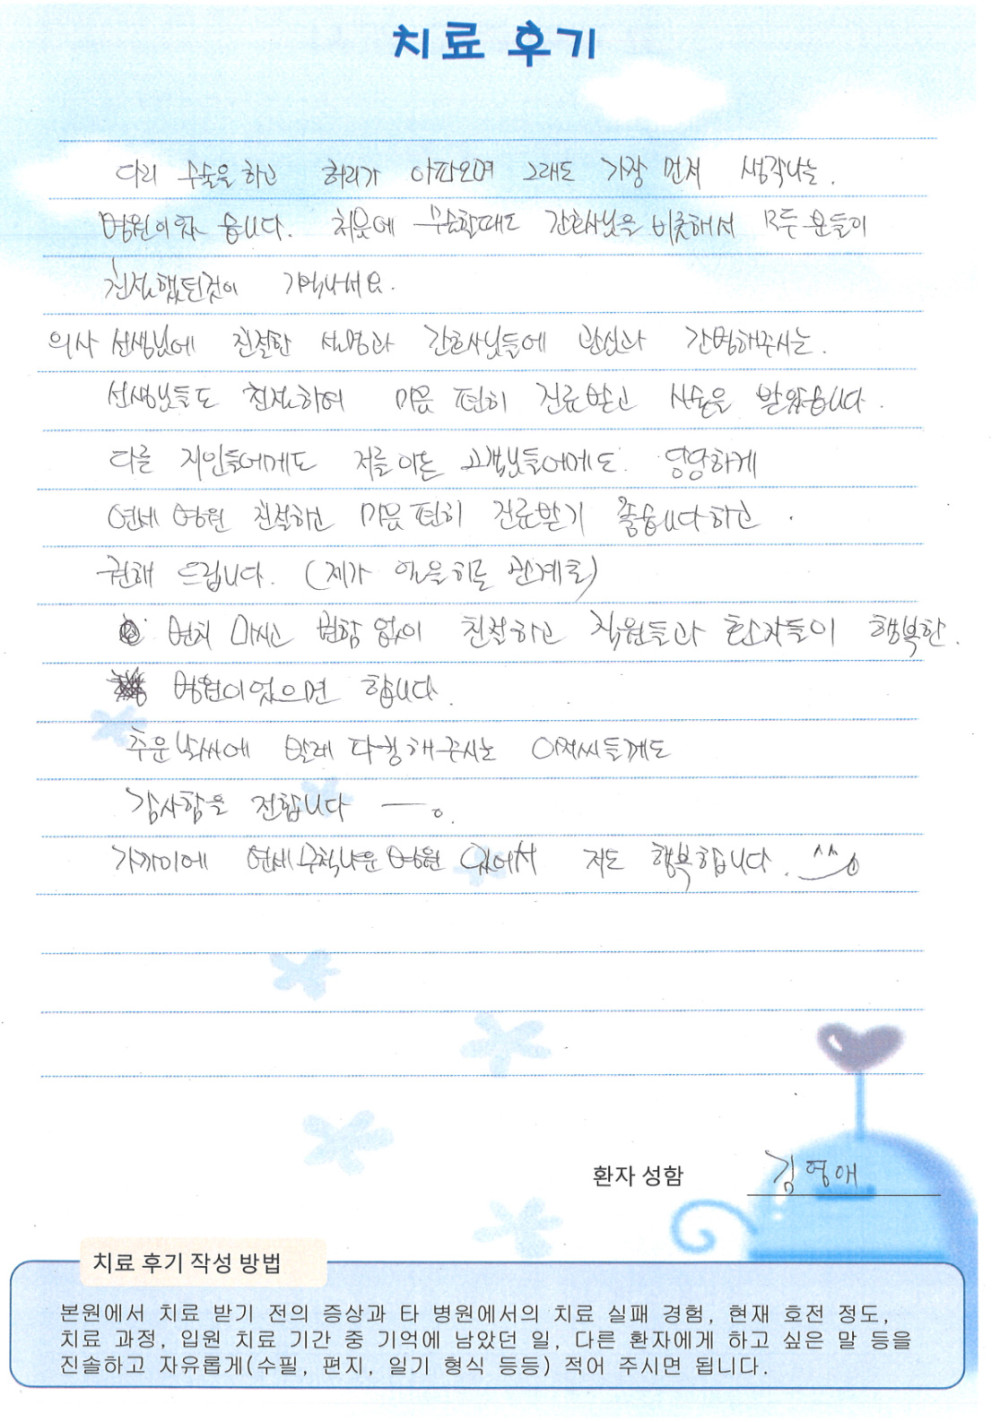 치료 후기
다리 수술을 하고 허리가 아파오며 그래도 가장 먼저 생각나는.
병원이 웁니다. 처음에 수술할때도 간호사님을 비롯해서 모두 분들이
친절했던것이 기억나세요.
의사 선생님에 친절한 설명과 간호사님들에 관심과 간병해주시는.
선생님들도 친절하여 마음 편히 진료받고 시술을 받았읍니다.
다른 지인들에게도 저를 아는 고객님들에게도 당당하게
연세 병원 친절하고 마음 편히 진료받기 좋습니다하고
권해 드립니다. (제가 하는 관계로)
변치 마시고 변함 없이 친절하고 직원들과 환자들이 행복한.
병원이었으면 합니다.
추운 날씨에 빨래 다해주시는 아저씨들께도
감사함을 전합니다 ㅡ。
가까이에 연세 병원 있어서 저도 행복합니다. ^^
환자 성함 김영애
치료 후기 작성 방법
본원에서 치료 받기 전의 증상과 타 병원에서의 치료 실패 경험, 현재 호전 정도,
치료 과정, 입원 치료 기간 중 기억에 남았던 일, 다른 환자에게 하고 싶은 말 등을
진솔하고 자유롭게(수필, 편지, 일기 형식 등등) 적어 주시면 됩니다.